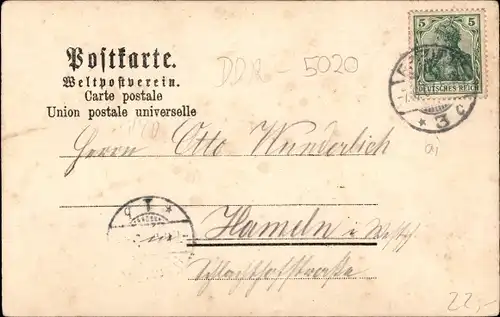 Postkarte.
Weltpostverein.
Carte postale
Union postale universelle
DDR - 5020
5 5
DEUTSCHES REICH
* 3 c
a)
Herrn Otto Wunderlich
Hameln i. Westf.
Schlachthofstraße
22,-